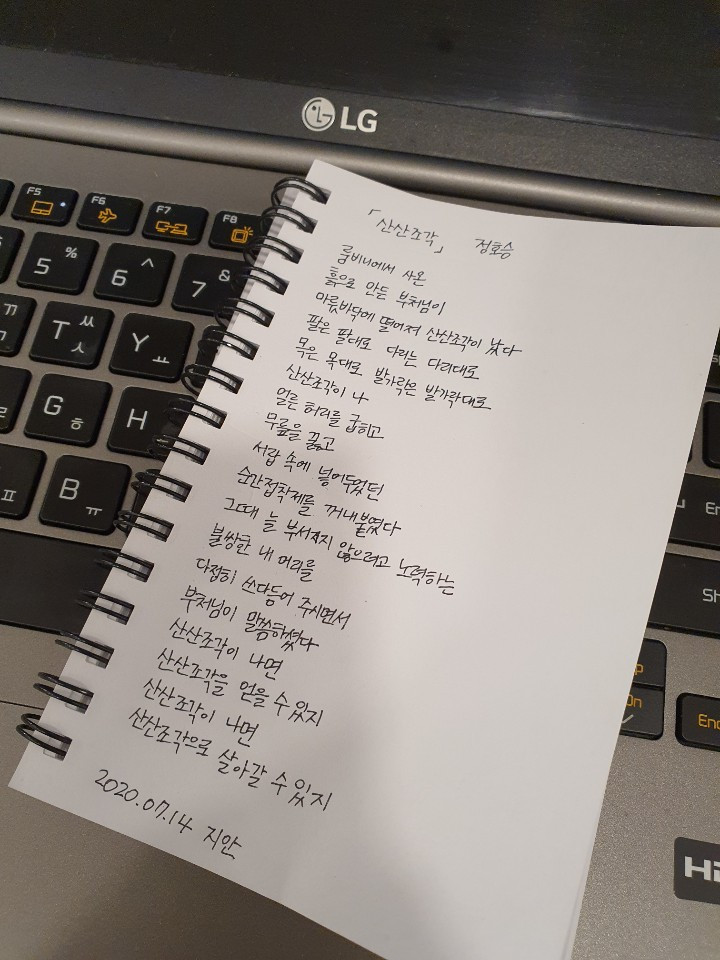 LG
F5
F6
F7
F8
5 %
6 ^
7 &
ㄲ
T ㅆ ㅅ
Y ㅛ
G ㅎ
H
ㅍ
B ㅠ
「산산조각」 정호승
룸비니에서 사온
흙으로 만든 부처님이
마룻바닥에 떨어져 산산조각이 났다
팔은 팔대로 다리는 다리대로
목은 목대로 발가락은 발가락대로
산산조각이 나
얼른 허리를 굽히고
무릎을 꿇고
서랍 속에 넣어두었던
순간접착제를 꺼내 붙였다
그때 늘 부서지지 않으려고 노력하는
불쌍한 내 머리를
다정히 쓰다듬어 주시면서
부처님이 말씀하셨다
산산조각이 나면
산산조각을 얻을 수 있지
산산조각이 나면
산산조각으로 살아갈 수 있지
2020.07.14 지안
En
Sh
On
End